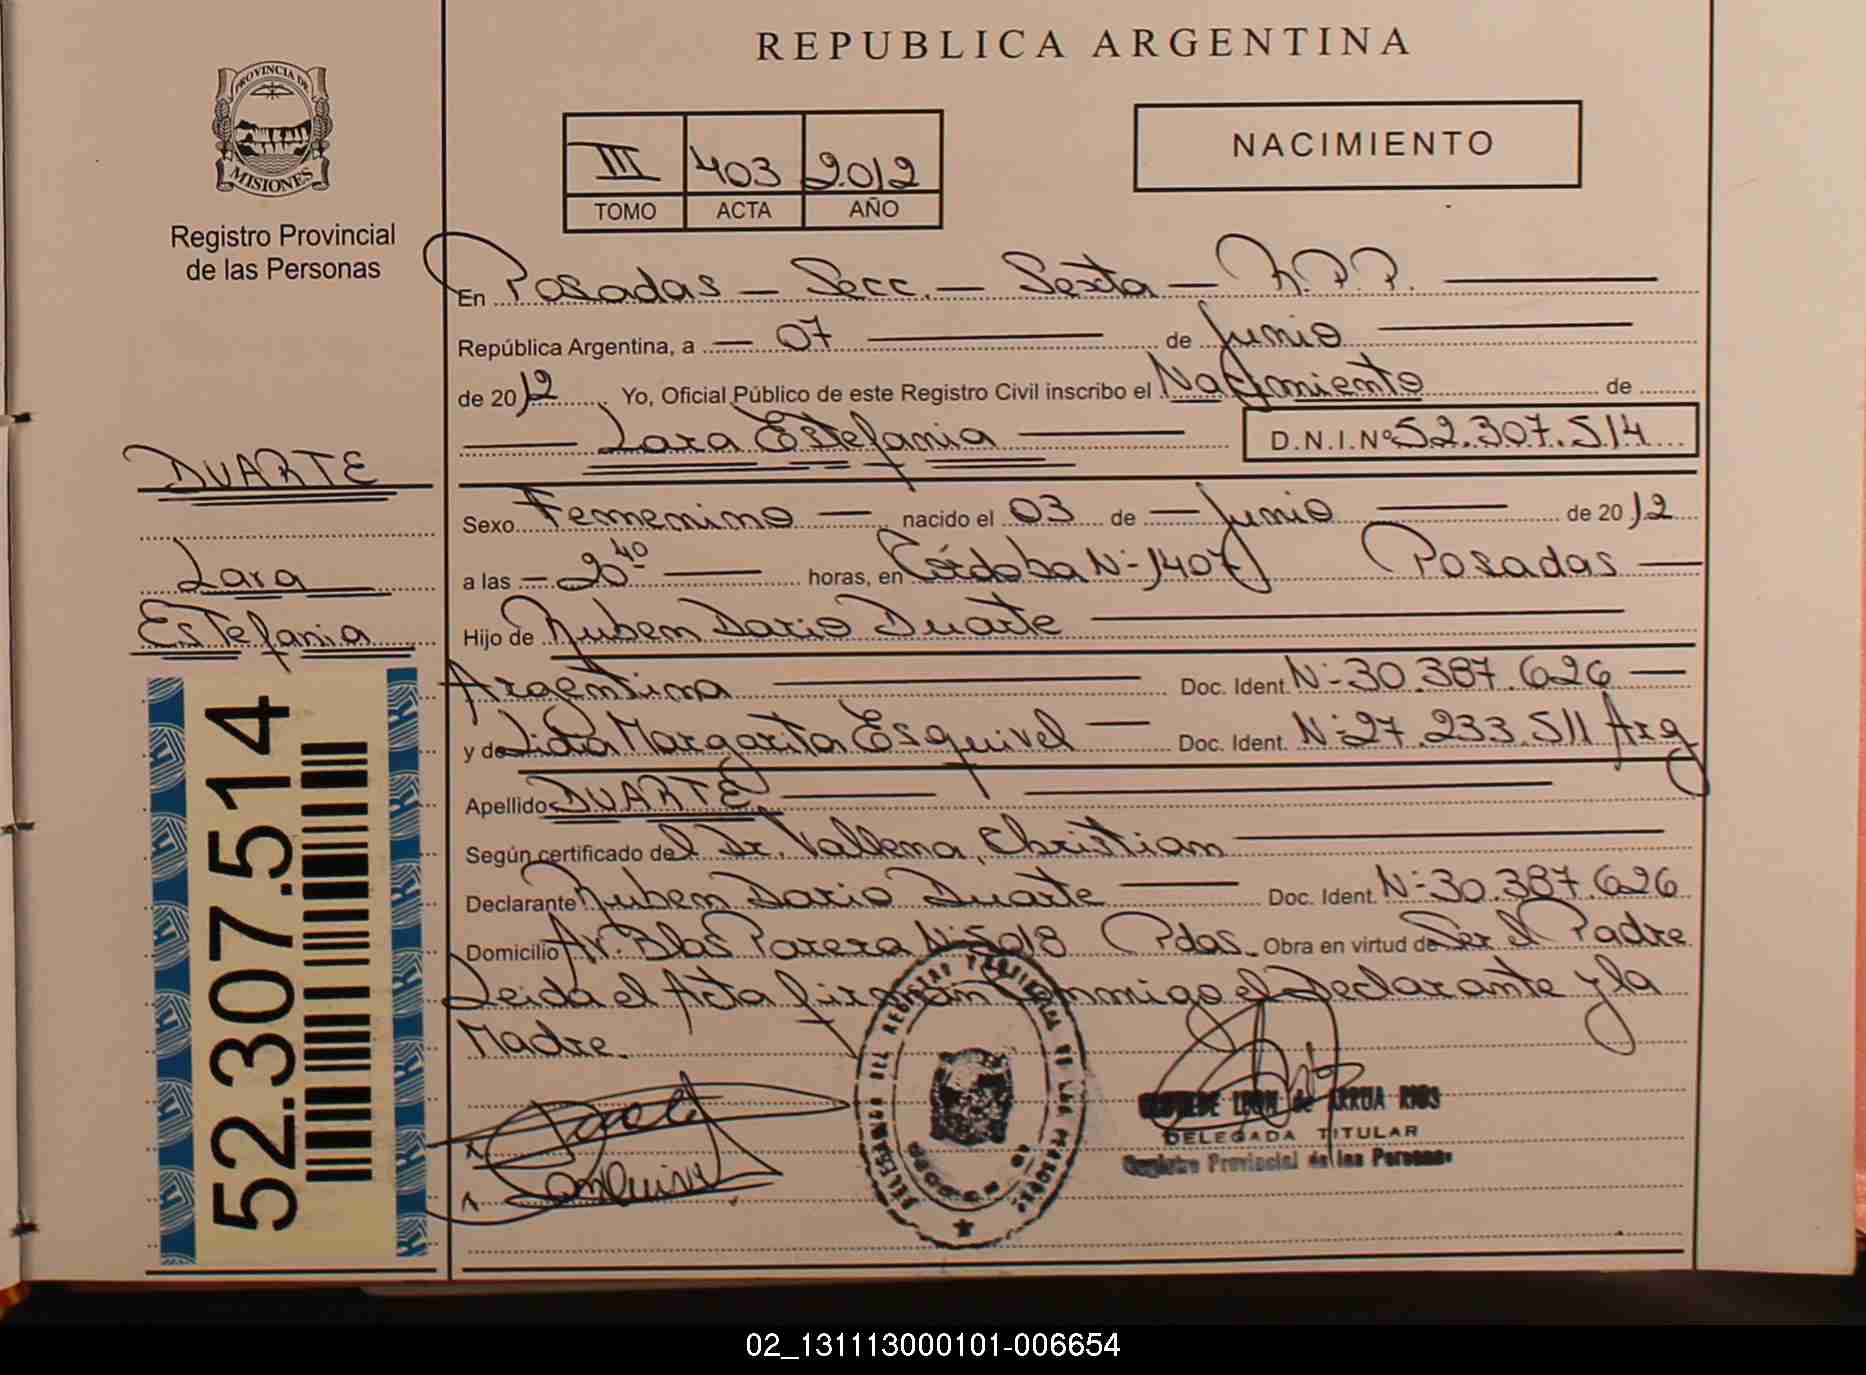 REPUBLICA ARGENTINA
PROVINCIA DE
MISIONES
Registro Provincial
de las Personas
III 403 2012
TOMO ACTA AÑO
NACIMIENTO
En Posadas - Secc. - Sexta - R.P.P.
República Argentina, a - 07 de Junio
de 2012 Yo, Oficial Público de este Registro Civil inscribo el Nacimiento de
Lara Estefania D.N.I.Nº 52.307.514
Sexo Femenino - nacido el 03 de - Junio de 2012
a las - 20 40 horas, en Córdoba N-1407 Posadas
Hijo de Ruben Dario Duarte
Argentina Doc. Ident. N-30.387.626
y de Lidia Margarita Esquivel Doc. Ident. N-27.233.511 Arg
Apellido DUARTE
Según certificado del Dr. Vallena, Christian
Declarante Ruben Dario Duarte Doc. Ident. N-30.387.626
Domicilio Av. Blas Parera N-5018 Pdas. Obra en virtud de Ser el Padre
Leida el Acta firman conmigo el Declarante y la
Madre.
DUARTE
Lara
Estefania
52.307.514
LEON de ARRUA RIOS
DELEGADA TITULAR
Registro Provincial de las Personas
02_131113000101-006654